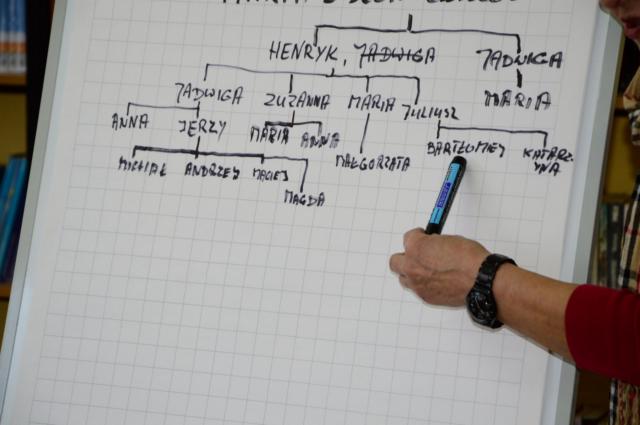 HENRYK, JADWIGA JADWIGA
JADWIGA ZUZANNA MARIA JULIUSZ MARIA
ANNA JERZY MARIA ANNA MAŁGORZATA BARTŁOMIEJ KATARZ
YNA
MICHAŁ ANDRZEJ MACIEJ
MAGDA